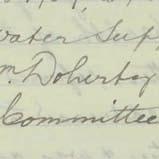 water Supp
m. Doherty
Committee